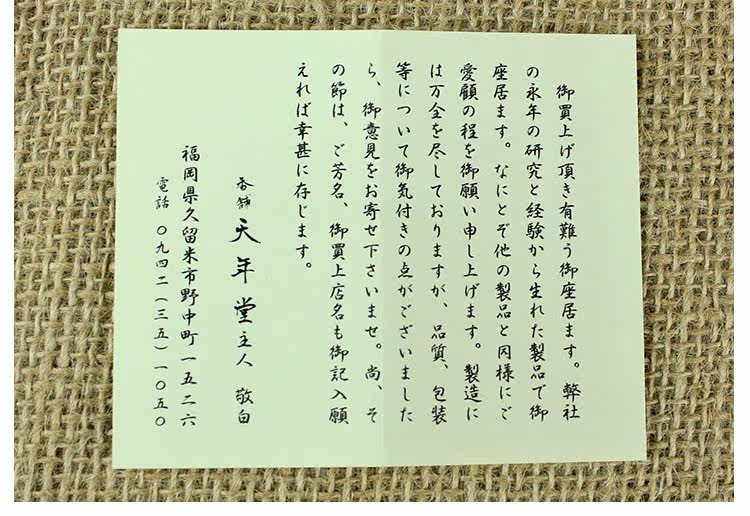 御買上げ頂き有難う御座居ます。弊社
の永年の研究と経験から生れた製品で御
座居ます。なにとぞ他の製品と同様にご
愛顧の程を御願い申し上げます。製造に
は万全を尽しておりますが、品質、包装
等について御気付きの点がございました
ら、御意見をお寄せ下さいませ。尚、そ
の節は、ご芳名、御買上店名も御記入願
えれば幸甚に存じます。
香舗 天年堂主人 敬白
福岡県久留米市野中町一五二六
電話 〇九四二(三五)一〇五〇